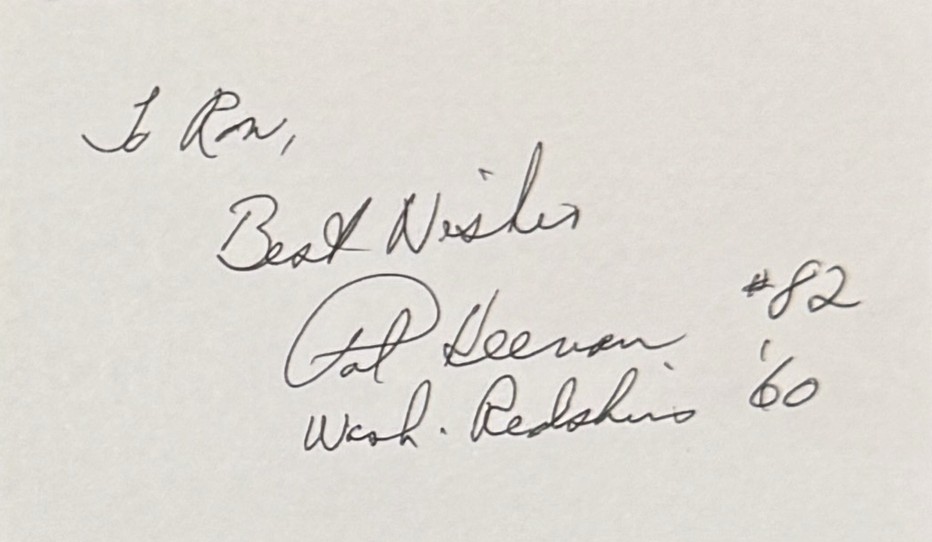 To Ron,
Best Wishes
Pat Heenan #82
Wash. Redskins '60